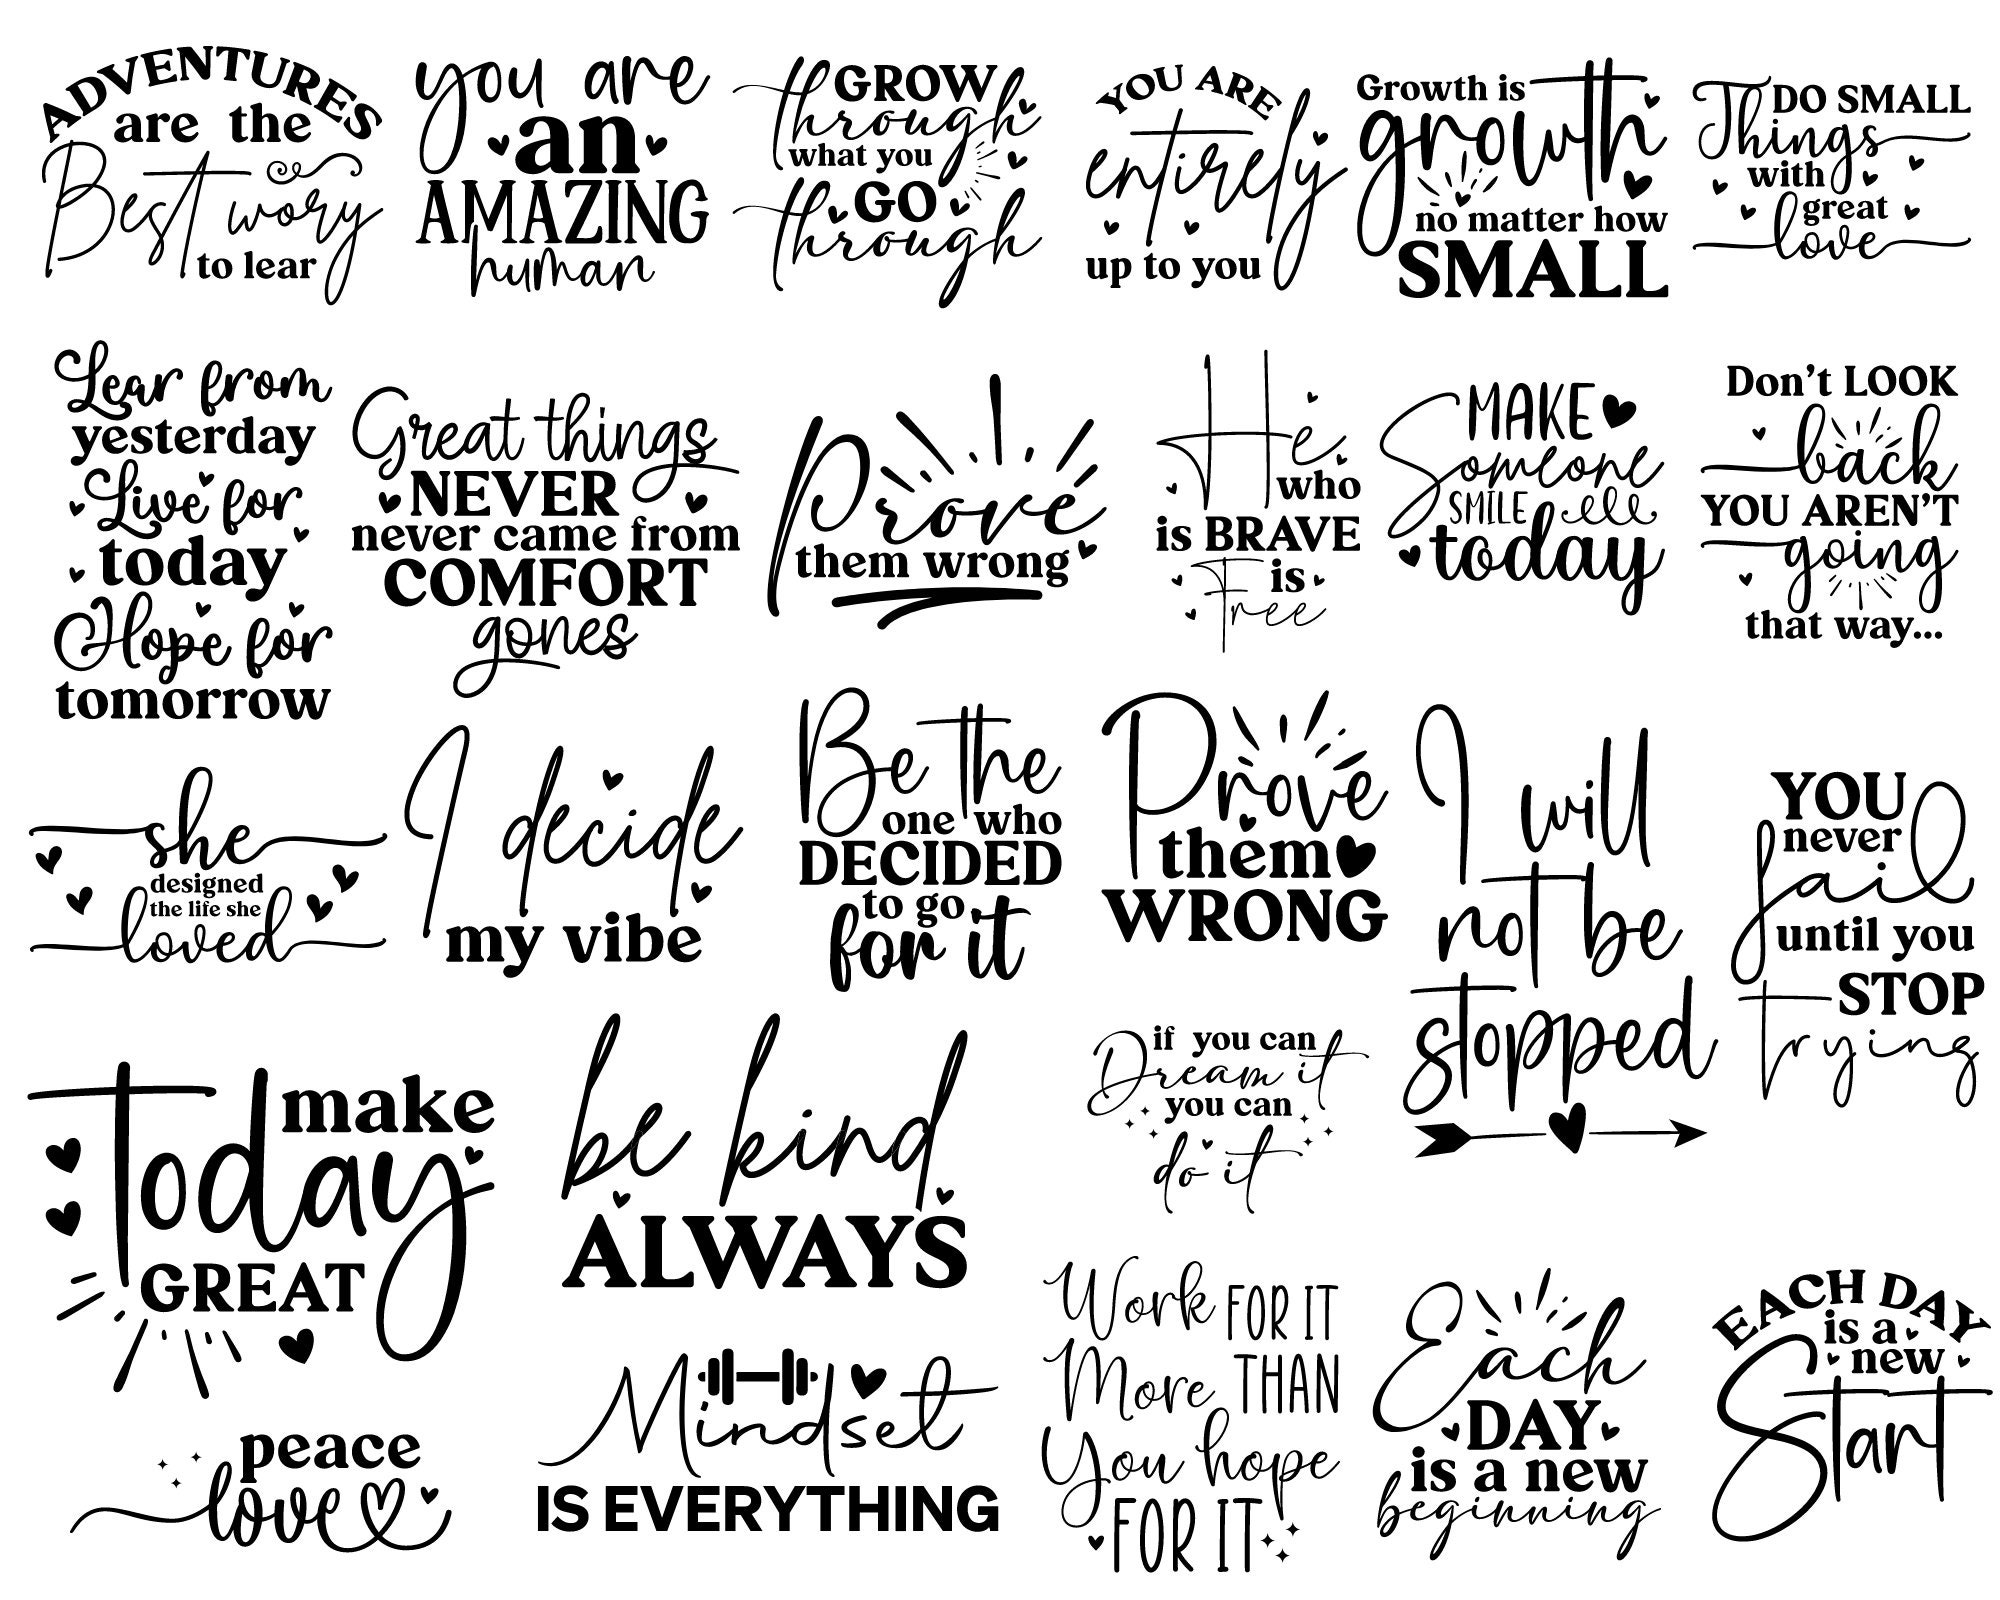 ADVENTURES
are the
Best wory
to lear
you are
an
AMAZING
human
GROW
through
what you
GO
through
YOU ARE
entirely
up to you
Growth is
growth
no matter how
SMALL
DO SMALL
Things
with
great
love
Lear from
yesterday
Live for
today
Hope for
tomorrow
Great things
NEVER
never came from
COMFORT
gones
Prove
them wrong
He
who
is BRAVE
is
Free
MAKE
Someone
SMILE
today
Don't LOOK
back
YOU AREN'T
going
that way...
she
designed
the life she
loved
I decide
my vibe
Be the
one who
DECIDED
to go
for it
Prove
them
WRONG
I will
not be
stopped
YOU
never
fail
until you
STOP
trying
make
Today
GREAT
be kind
ALWAYS
if you can
Dream it
you can
do it
peace
love
Mindset
IS EVERYTHING
Work FOR IT
More THAN
You hope
FOR IT
Each
DAY
is a new
beginning
EACH DAY
is a
new
Start